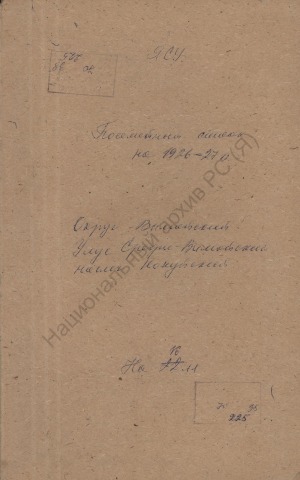 ЯСУ.
Посемейный список
на 1926-27 г
Округ Вилюйский
Улус Средне-Вилюйский
наслег Кокуйский
16
На 12 лл
225
Национальный архив РС (Я)